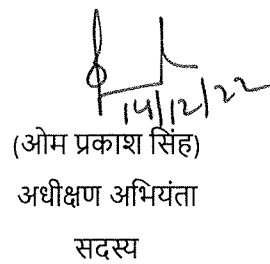 14/12/22
(ओम प्रकाश सिंह)
अधीक्षण अभियंता
सदस्य